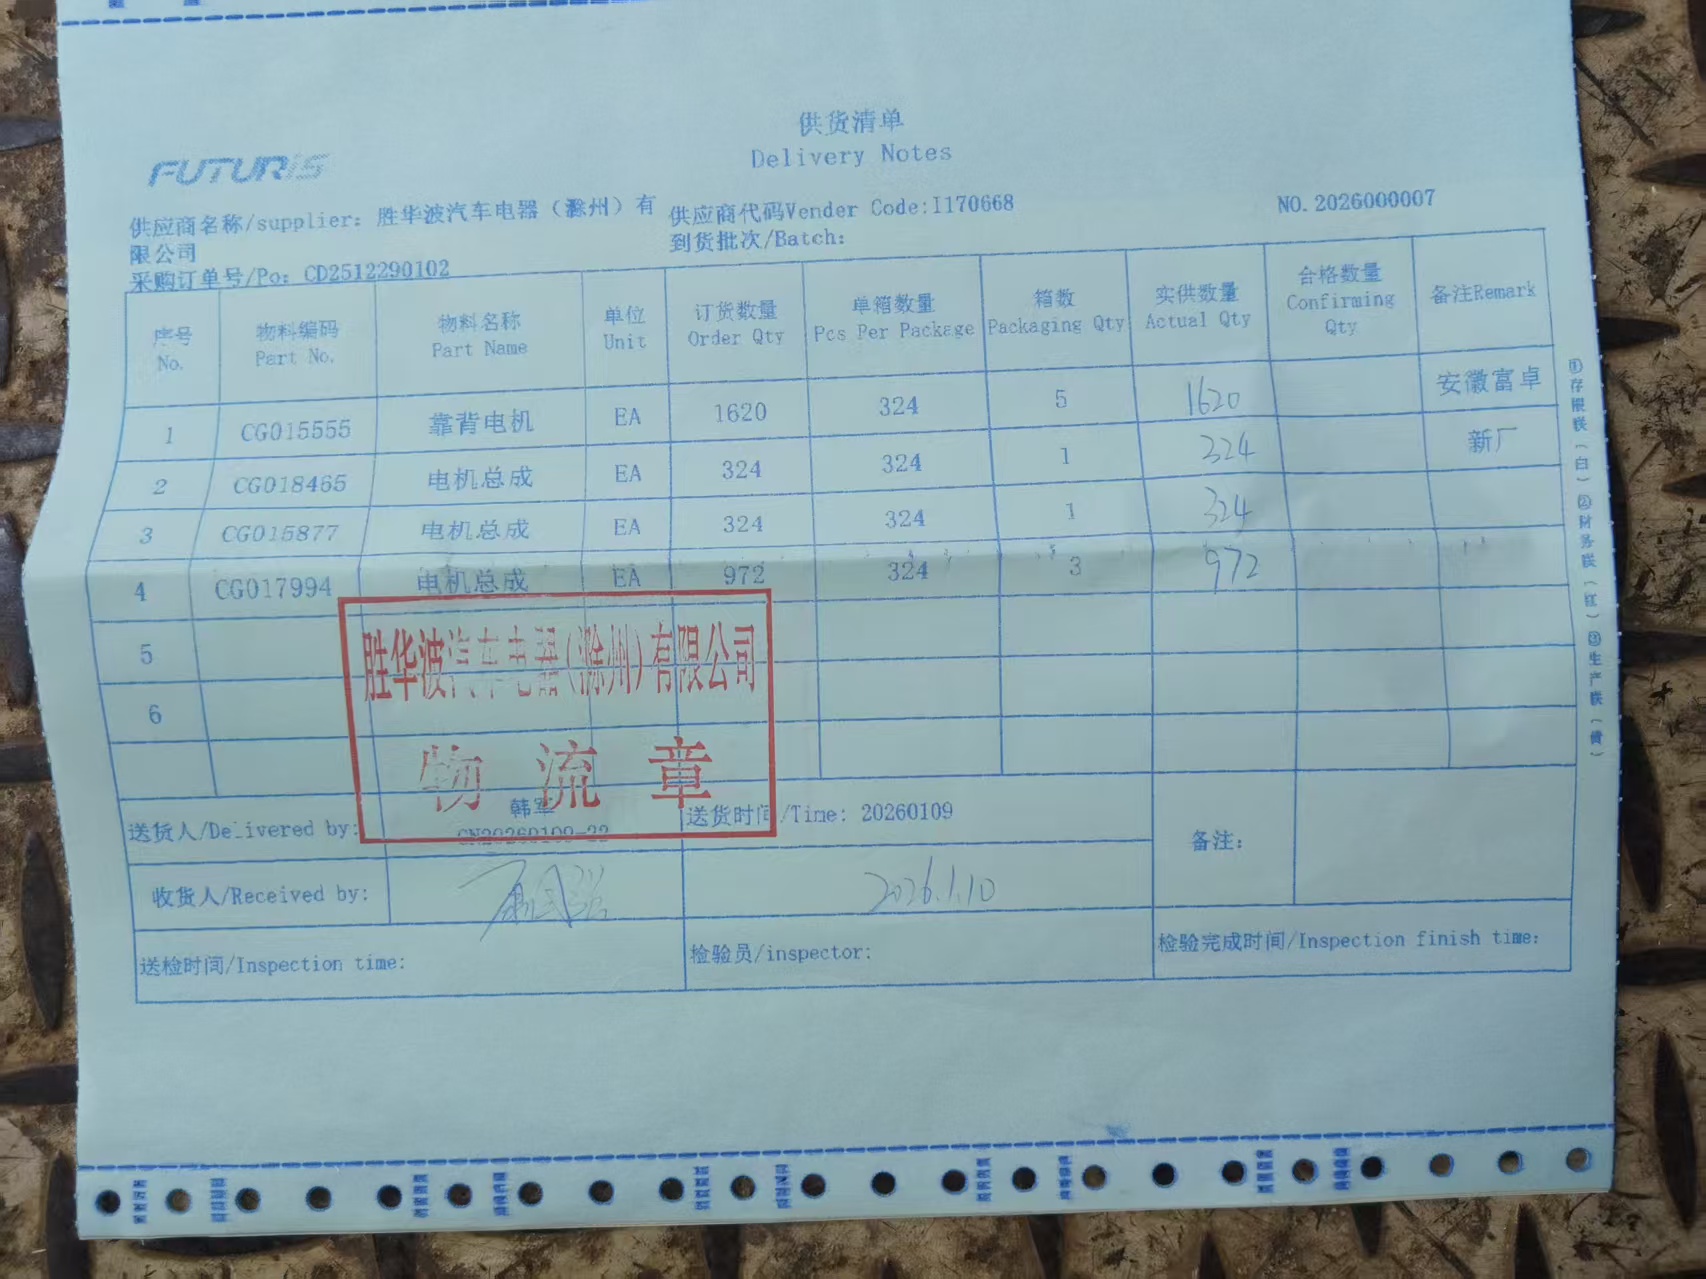 供货清单
Delivery Notes
FUTURIS
供应商名称/supplier: 胜华波汽车电器（滁州）有限公司
供应商代码Vender Code:I170668
NO.2026000007
到货批次/Batch:
采购订单号/Po: CD2512290102
序号 No. 物料编码 Part No. 物料名称 Part Name 单位 Unit 订货数量 Order Qty 单箱数量 Pcs Per Package 箱数 Packaging Qty 实供数量 Actual Qty 合格数量 Confirming Qty 备注Remark
1 CG015555 靠背电机 EA 1620 324 5 1620 安徽富卓
2 CG018465 电机总成 EA 324 324 1 324 新厂
3 CG015877 电机总成 EA 324 324 1 324
4 CG017994 电机总成 EA 972 324 3 972
5
6
胜华波汽车电器（滁州）有限公司
物流章
送货人/Delivered by: 韩军
送货时间/Time: 20260109
备注:
收货人/Received by:
2026.1.10
送检时间/Inspection time:
检验员/inspector:
检验完成时间/Inspection finish time:
①存根联（白）②财务联（红）③生产联（黄）